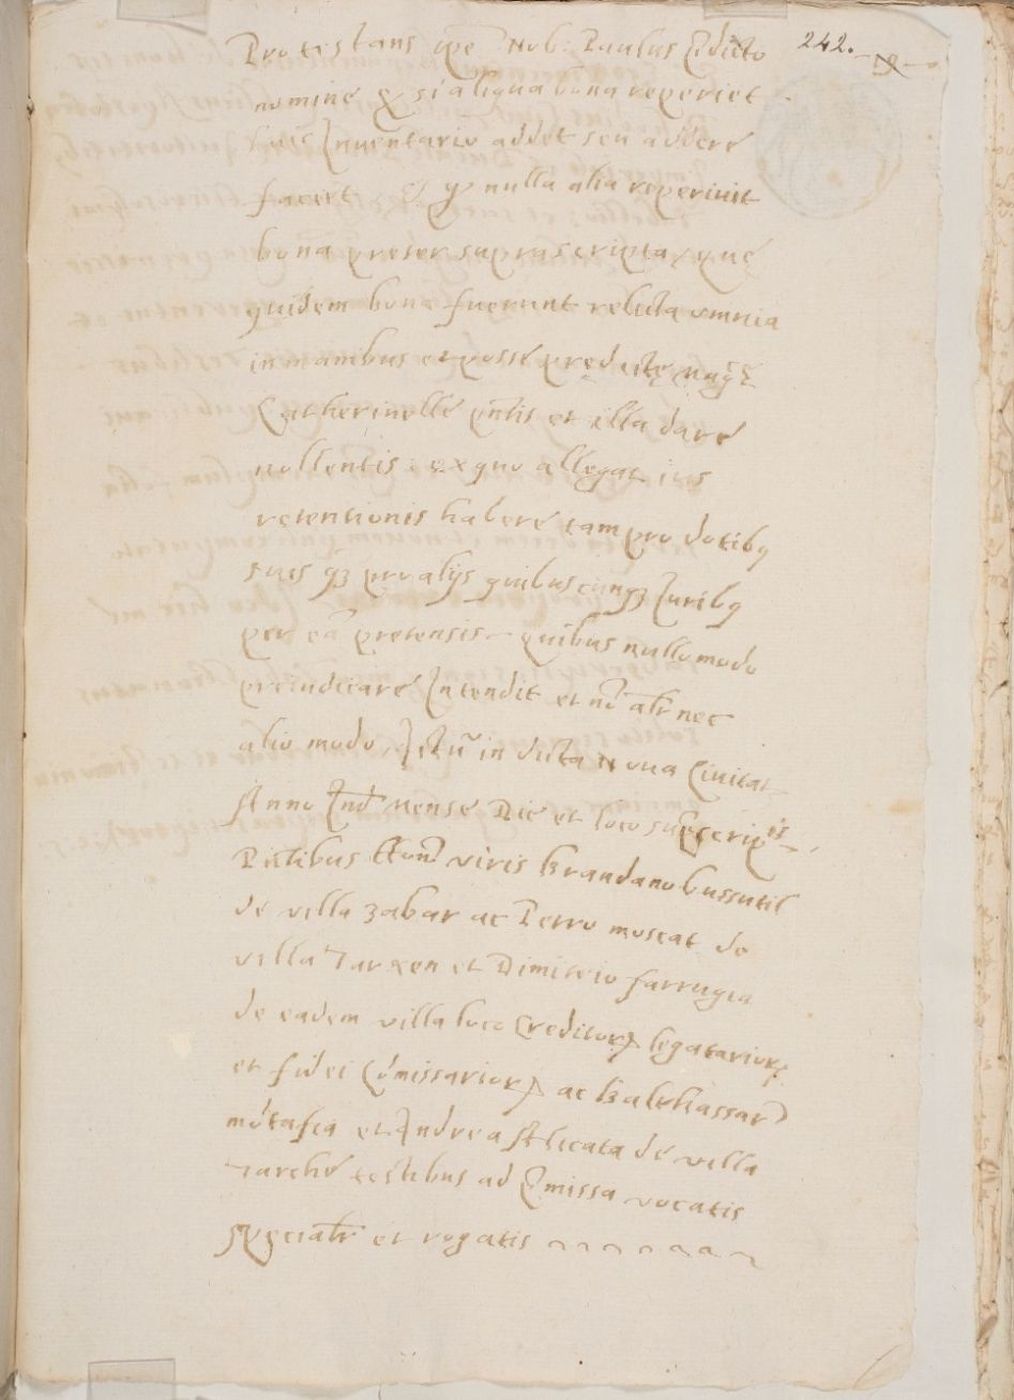 242.
Protestans ipē Nob: Paulus p̄dicto
nomine q̄ si aliqua bona reperiet
huic Inuentario addet seu addere
faciet & q̄ nulla alia reperiuit
bona preter suprascripta que
quidem bona fuerunt relicta omnia
in manibus et posse prędictę
Catherinelle p̄ntis et illa dare
nollentis: ex quo allegat ius
retentionis habere tam pro dotibꝯ
suis qꝫ pro alijs quibuscunqꝫ Juribꝯ
per eā pretensis quibus nullo modo
preiudicare Intendit et nō alr̄ nec
alio modo. Actū in dicta Noua Ciuitat
Anno Ind̄ Mense Die et loco sup̄scriptis
P̄ntibus Hon̄ viris Brandano bussutil
de villa zabar ac Petro muscat de
villa Tarxen et Dimitrio farrugia
de eadem villa loco Creditorꝝ legatariorꝝ
et fidei Cōmissariorꝝ ac Balthassar
mōtafia et Andrea Alicata de villa
Tarche testibus ad p̄missa vocatis
specialr̄ et rogatis